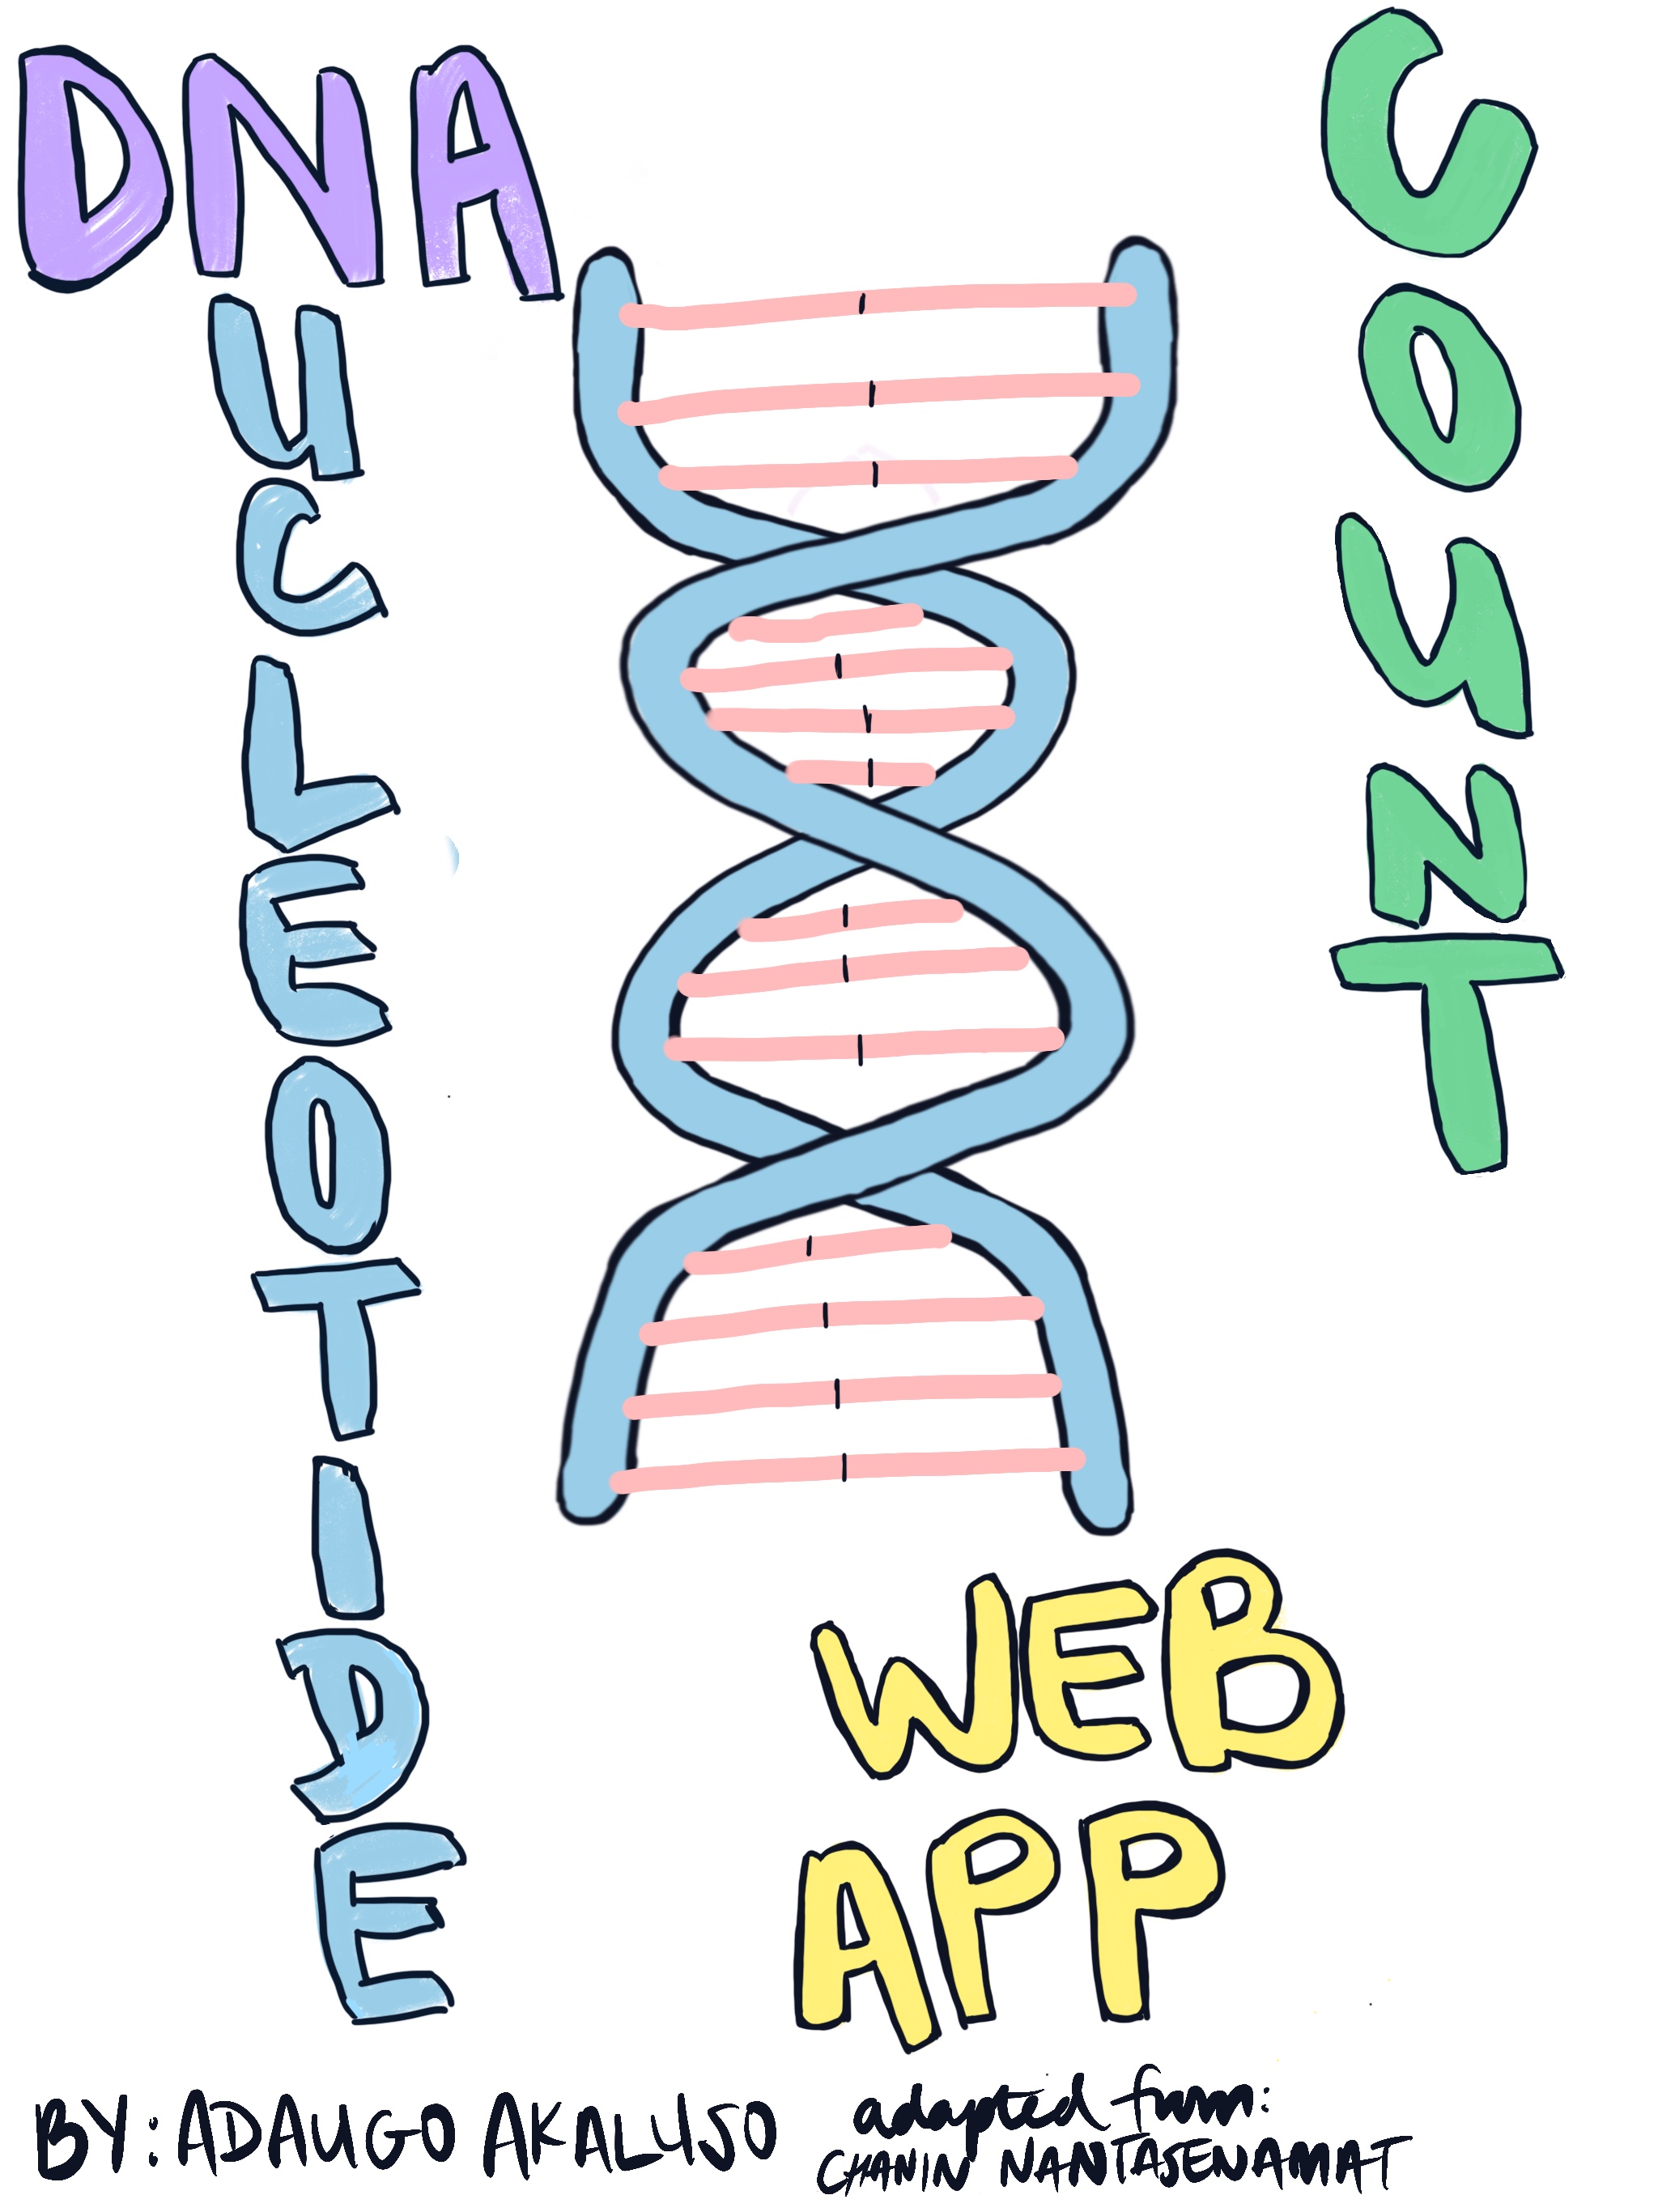 DNA
NUCLEOTIDE
COUNT
WEB
APP
BY: ADAUGO AKALUSO
adapted from:
CHANIN NANTASENAMAT